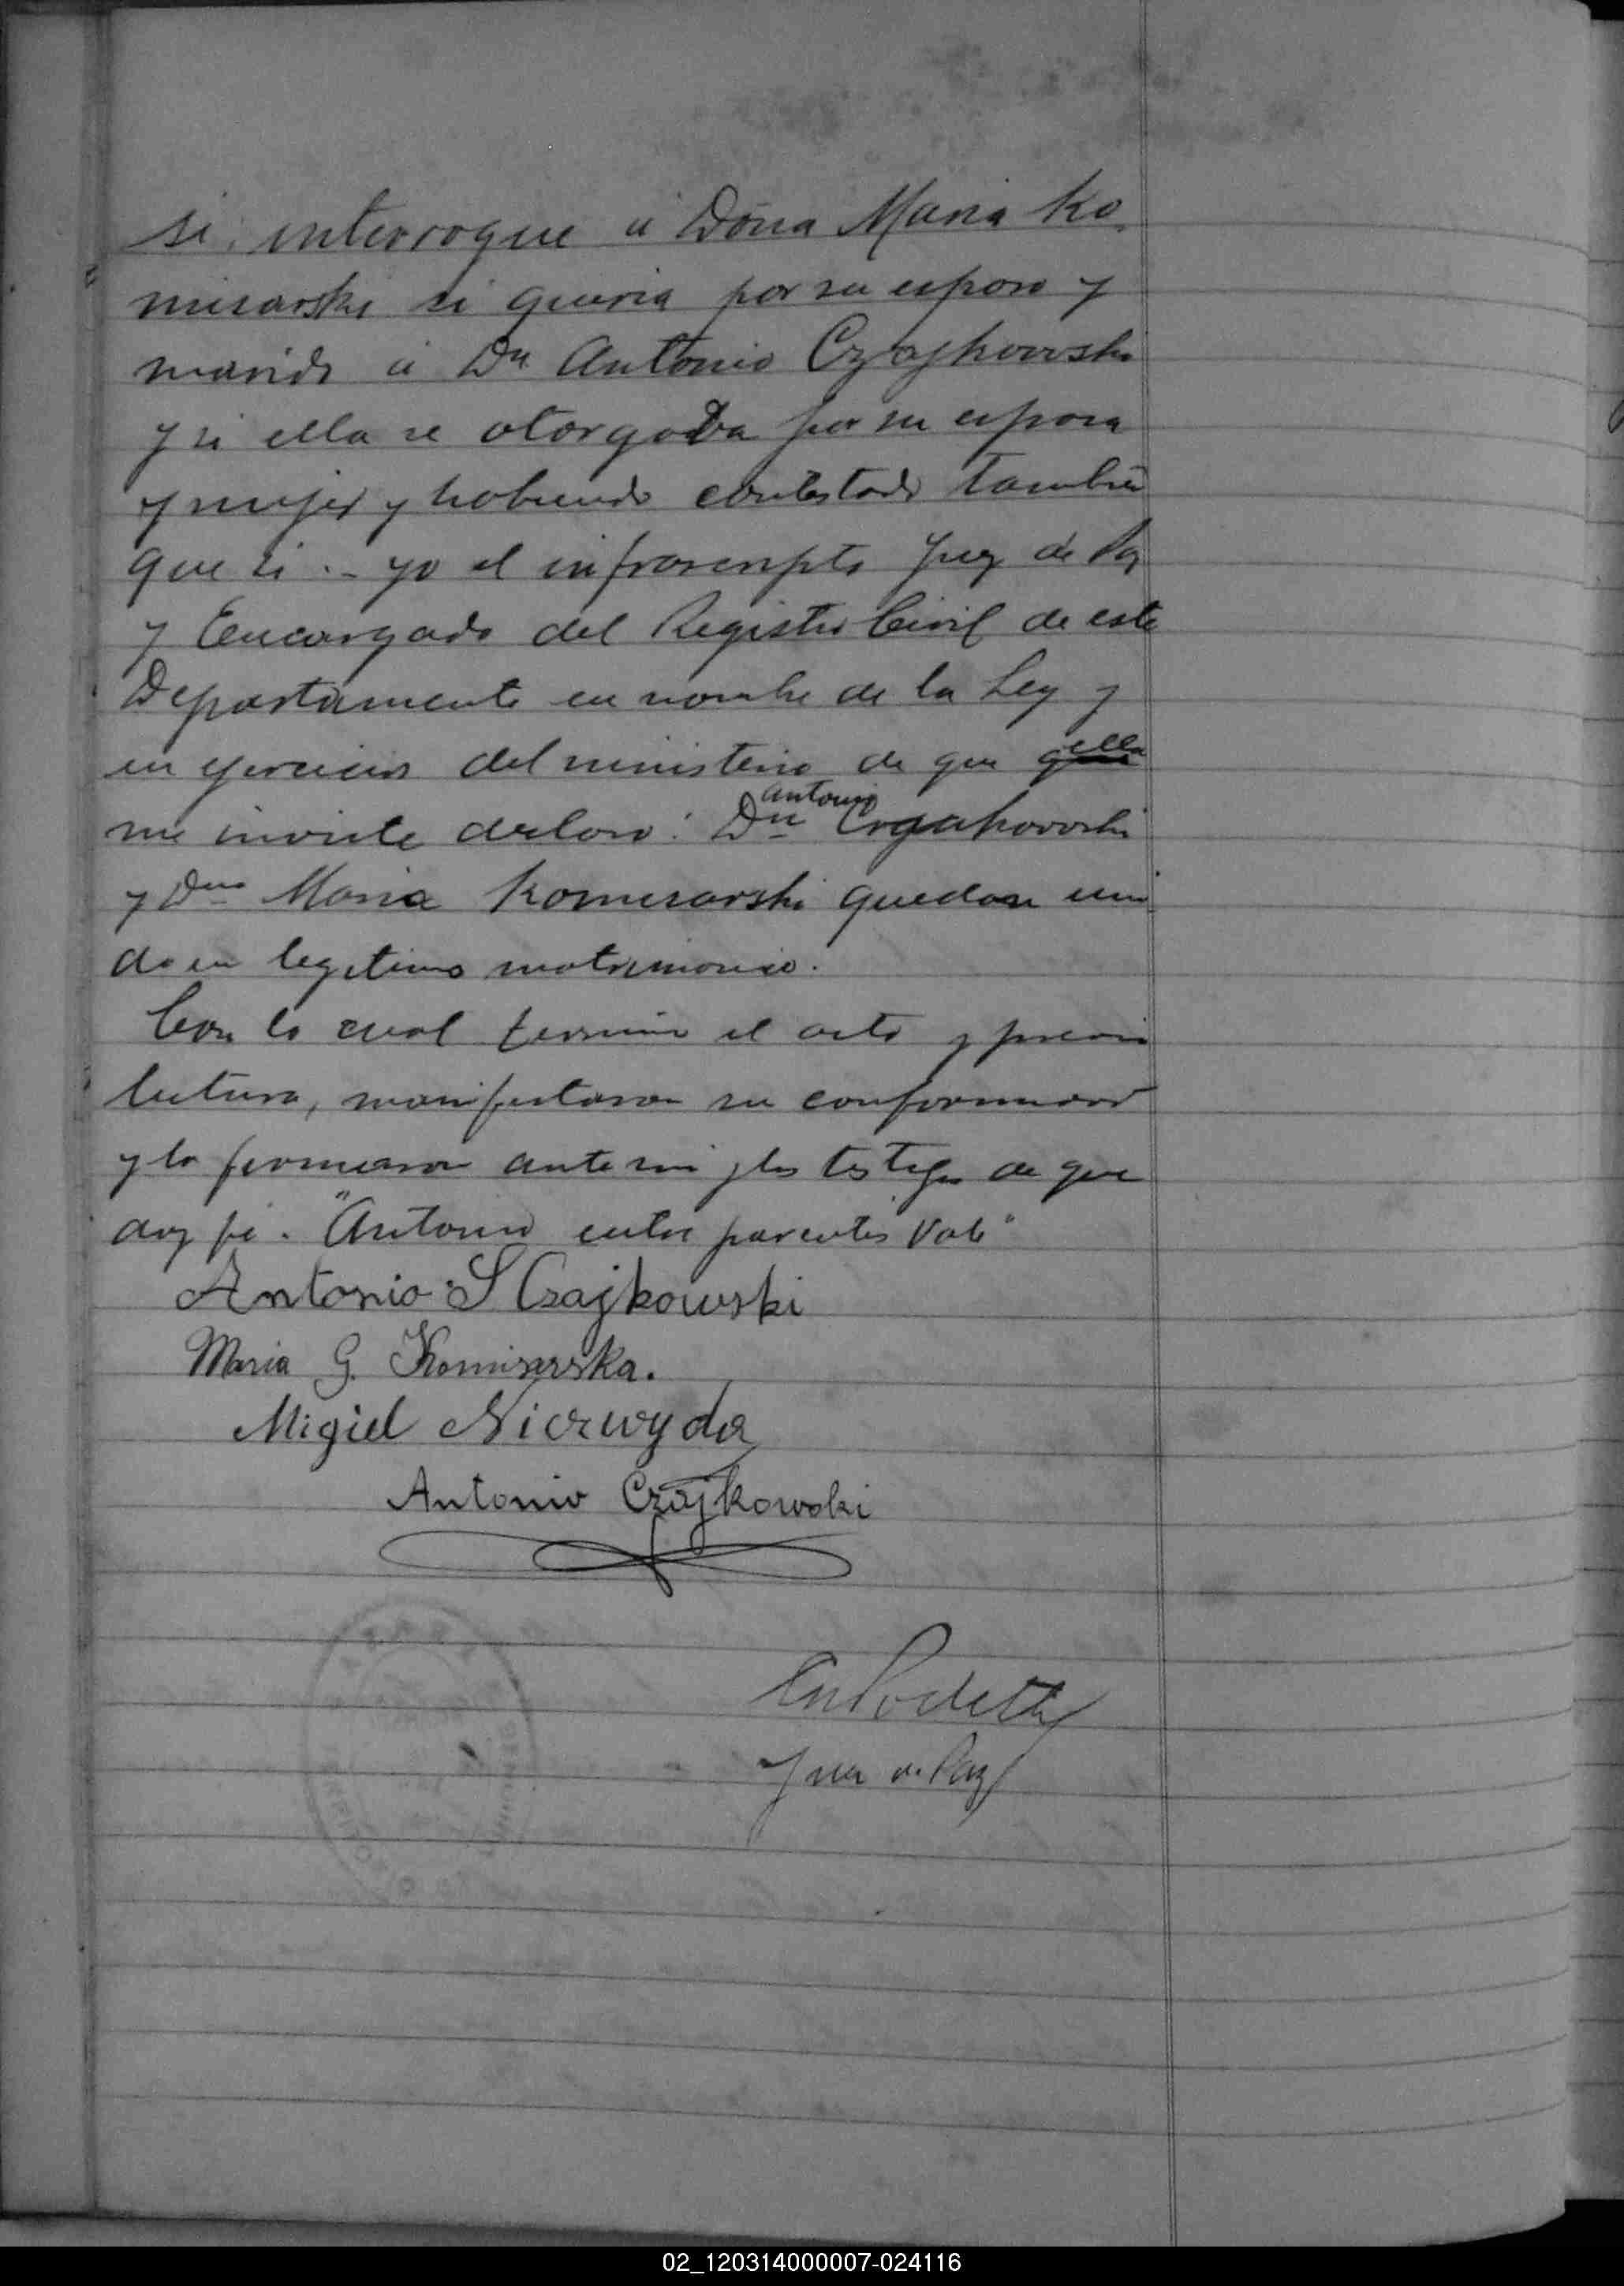 si, interrogue á Doña Maria Ko-
misarski si queria por su esposo y
marido á Dn Antonio Czajkowski
y si ella se otorgaba por su esposa
y mujer y habiendo contestado tambien
que si .- yo el infrascripto Juez de Paz
y Encargado del Registro Civil de este
Departamento en nombre de la Ley y
en ejercicio del ministerio de que ella
antonio
me inviste declaro: Dn Czajkowoski
y Dna Maria Komisarski quedan uni
do en legitimo matrimonio.
Con lo cual termino el acto y previa
lectura, manifestaron su conformidad
y la firmaron ante mi y los testigos de que
doy fé. "Antonio entre parentes Vale"
Antonio S Czajkowski
Maria G. Komisarska.
Migiel Niezwyda
Antonio Czajkowski
Juez de Paz
02_120314000007-024116